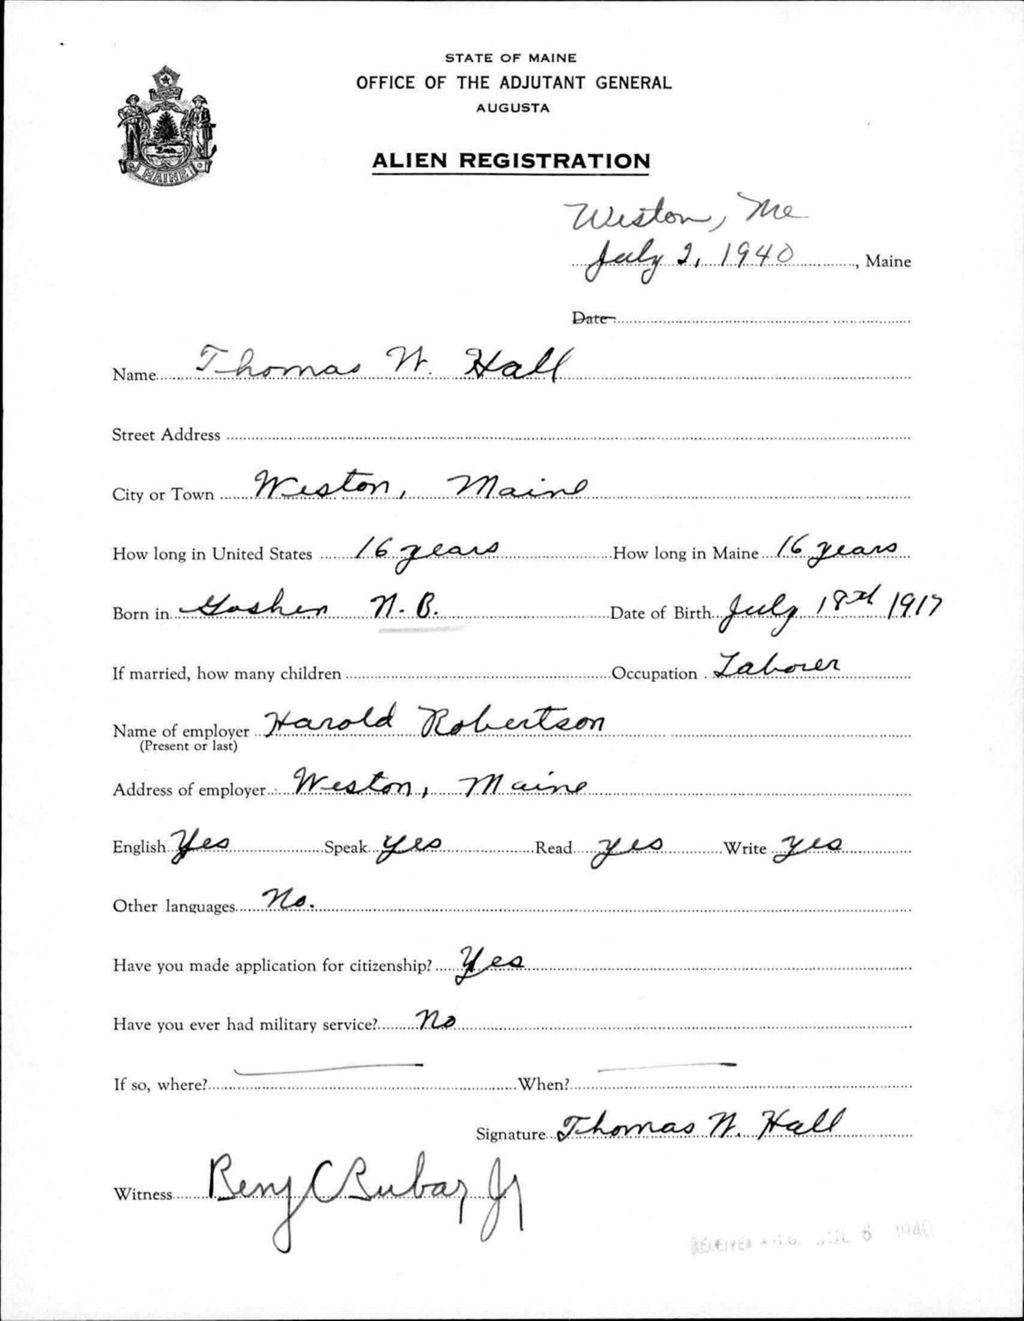 STATE OF MAINE
OFFICE OF THE ADJUTANT GENERAL
AUGUSTA
MAINE
ALIEN REGISTRATION
Weston, Me
July 2, 1940, Maine
Date
Name Thomas W. Hall
Street Address
City or Town Weston, Maine
How long in United States 16 years How long in Maine 16 years
Born in Goshen N.B. Date of Birth July 18th 1917
If married, how many children Occupation Laborer
Name of employer Harold Robertson
(Present or last)
Address of employer Weston, Maine
English Yes Speak yes Read yes Write yes
Other languages No.
Have you made application for citizenship? Yes
Have you ever had military service? No
If so, where? When?
Signature Thomas W. Hall
Witness Benj C Bubar Jr
RECEIVED A.G.O. JUL 6 1940